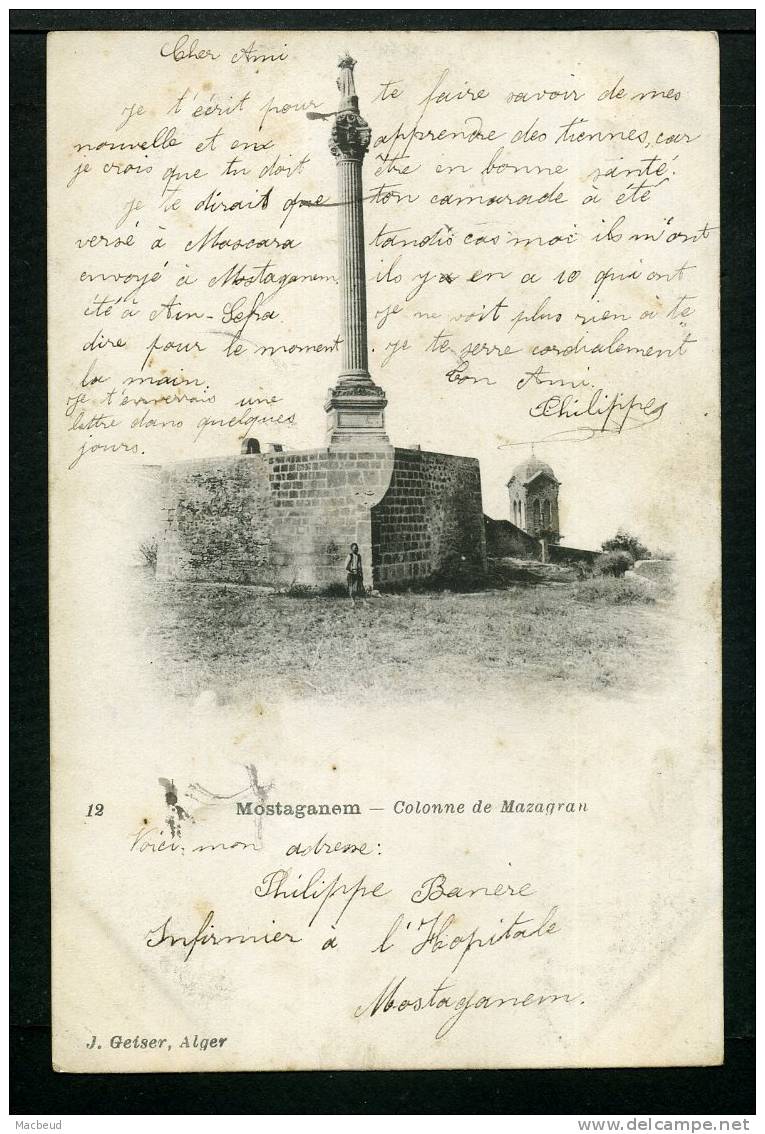 Cher Ami
je t'écrit pour te faire savoir de mes
nouvelle et en apprendre des tiennes, car
je crois que tu doit être en bonne santé.
je te dirait que ton camarade à été
versé à Mascara tandis cas moi ils m'ont
envoyé à Mostaganem ils y en a 10 qui ont
été à Ain-Sefra. je ne voit plus rien à te
dire pour le moment. je te serre cordialement
la main. Ton Ami.
je t'ecrverais une Philippe
lettre dans quelques
jours.
12 Mostaganem — Colonne de Mazagran
Voici mon adresse:
Philippe Banère
Infirmier à l'Hopitale
Mostaganem.
J. Geiser, Alger
Macbeud
www.delcampe.net